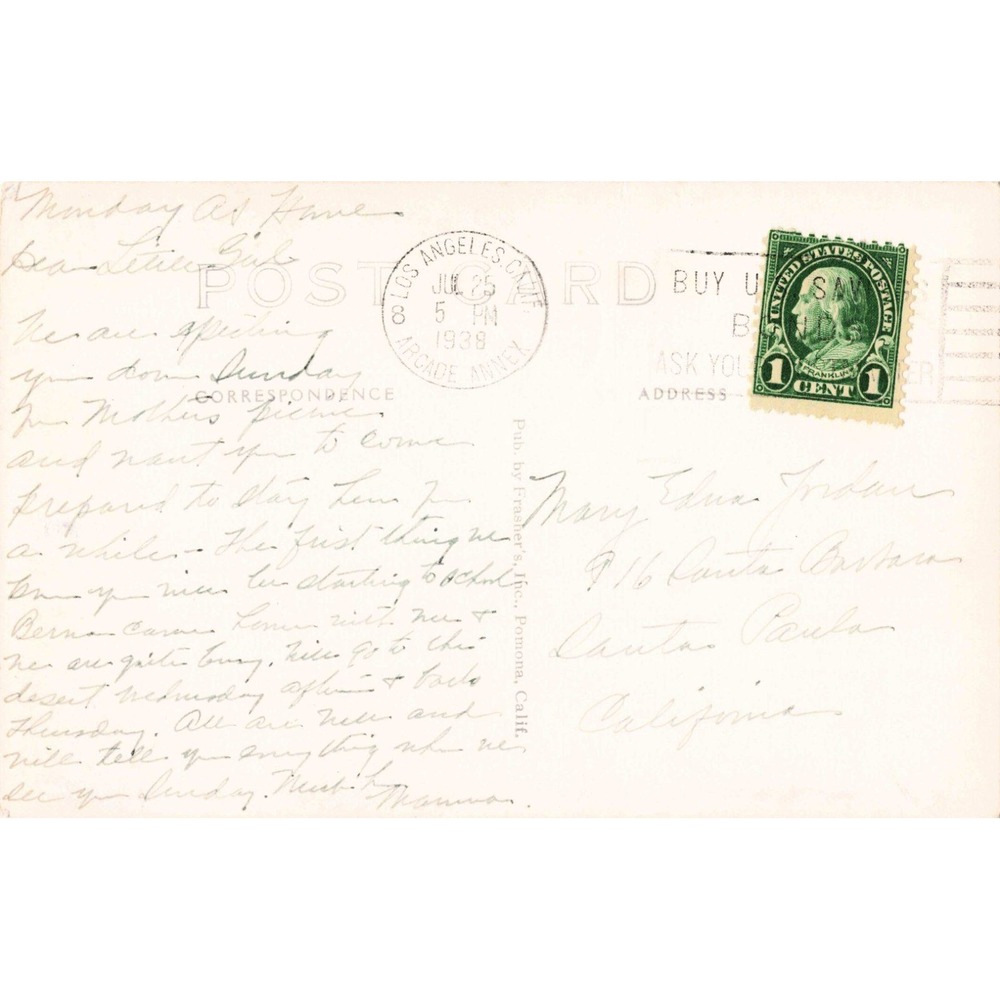 Monday At Home
Dear Little Girl
POST CARD
LOS ANGELES, CALIF.
JUL 25
5 PM
1938
8 ARCADE ANNEX
BUY U SAV
B
ASK YOU ER
UNITED STATES POSTAGE
FRANKLIN
1 CENT 1
CORRESPONDENCE
ADDRESS
We are expecting
you down Sunday
for Mothers picnic
and want you to come
prepared to stay here for
a while - The first thing we
know you will be starting to school
Berna came home with me &
we are quite busy. Will go to the
desert Wednesday & back
Thursday. All are well and
will tell you everything when we
see you Sunday. Much L
Mamma.
Pub. by Frasher's, Inc., Pomona, Calif.
Mary Edna Jordan
916 Santa Barbara
Santa Paula
California